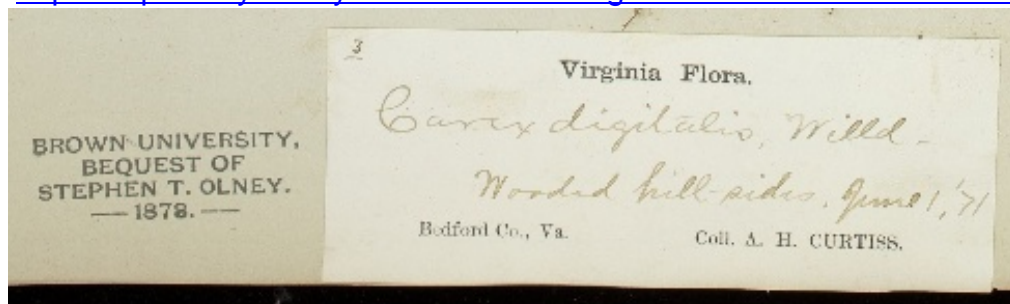 BROWN UNIVERSITY,
BEQUEST OF
STEPHEN T. OLNEY.
— 1878. —
3
Virginia Flora.
Carex digitalis, Willd.
Wooded hill-sides. June 1, '71
Bedford Co., Va. Coll. A. H. CURTISS.